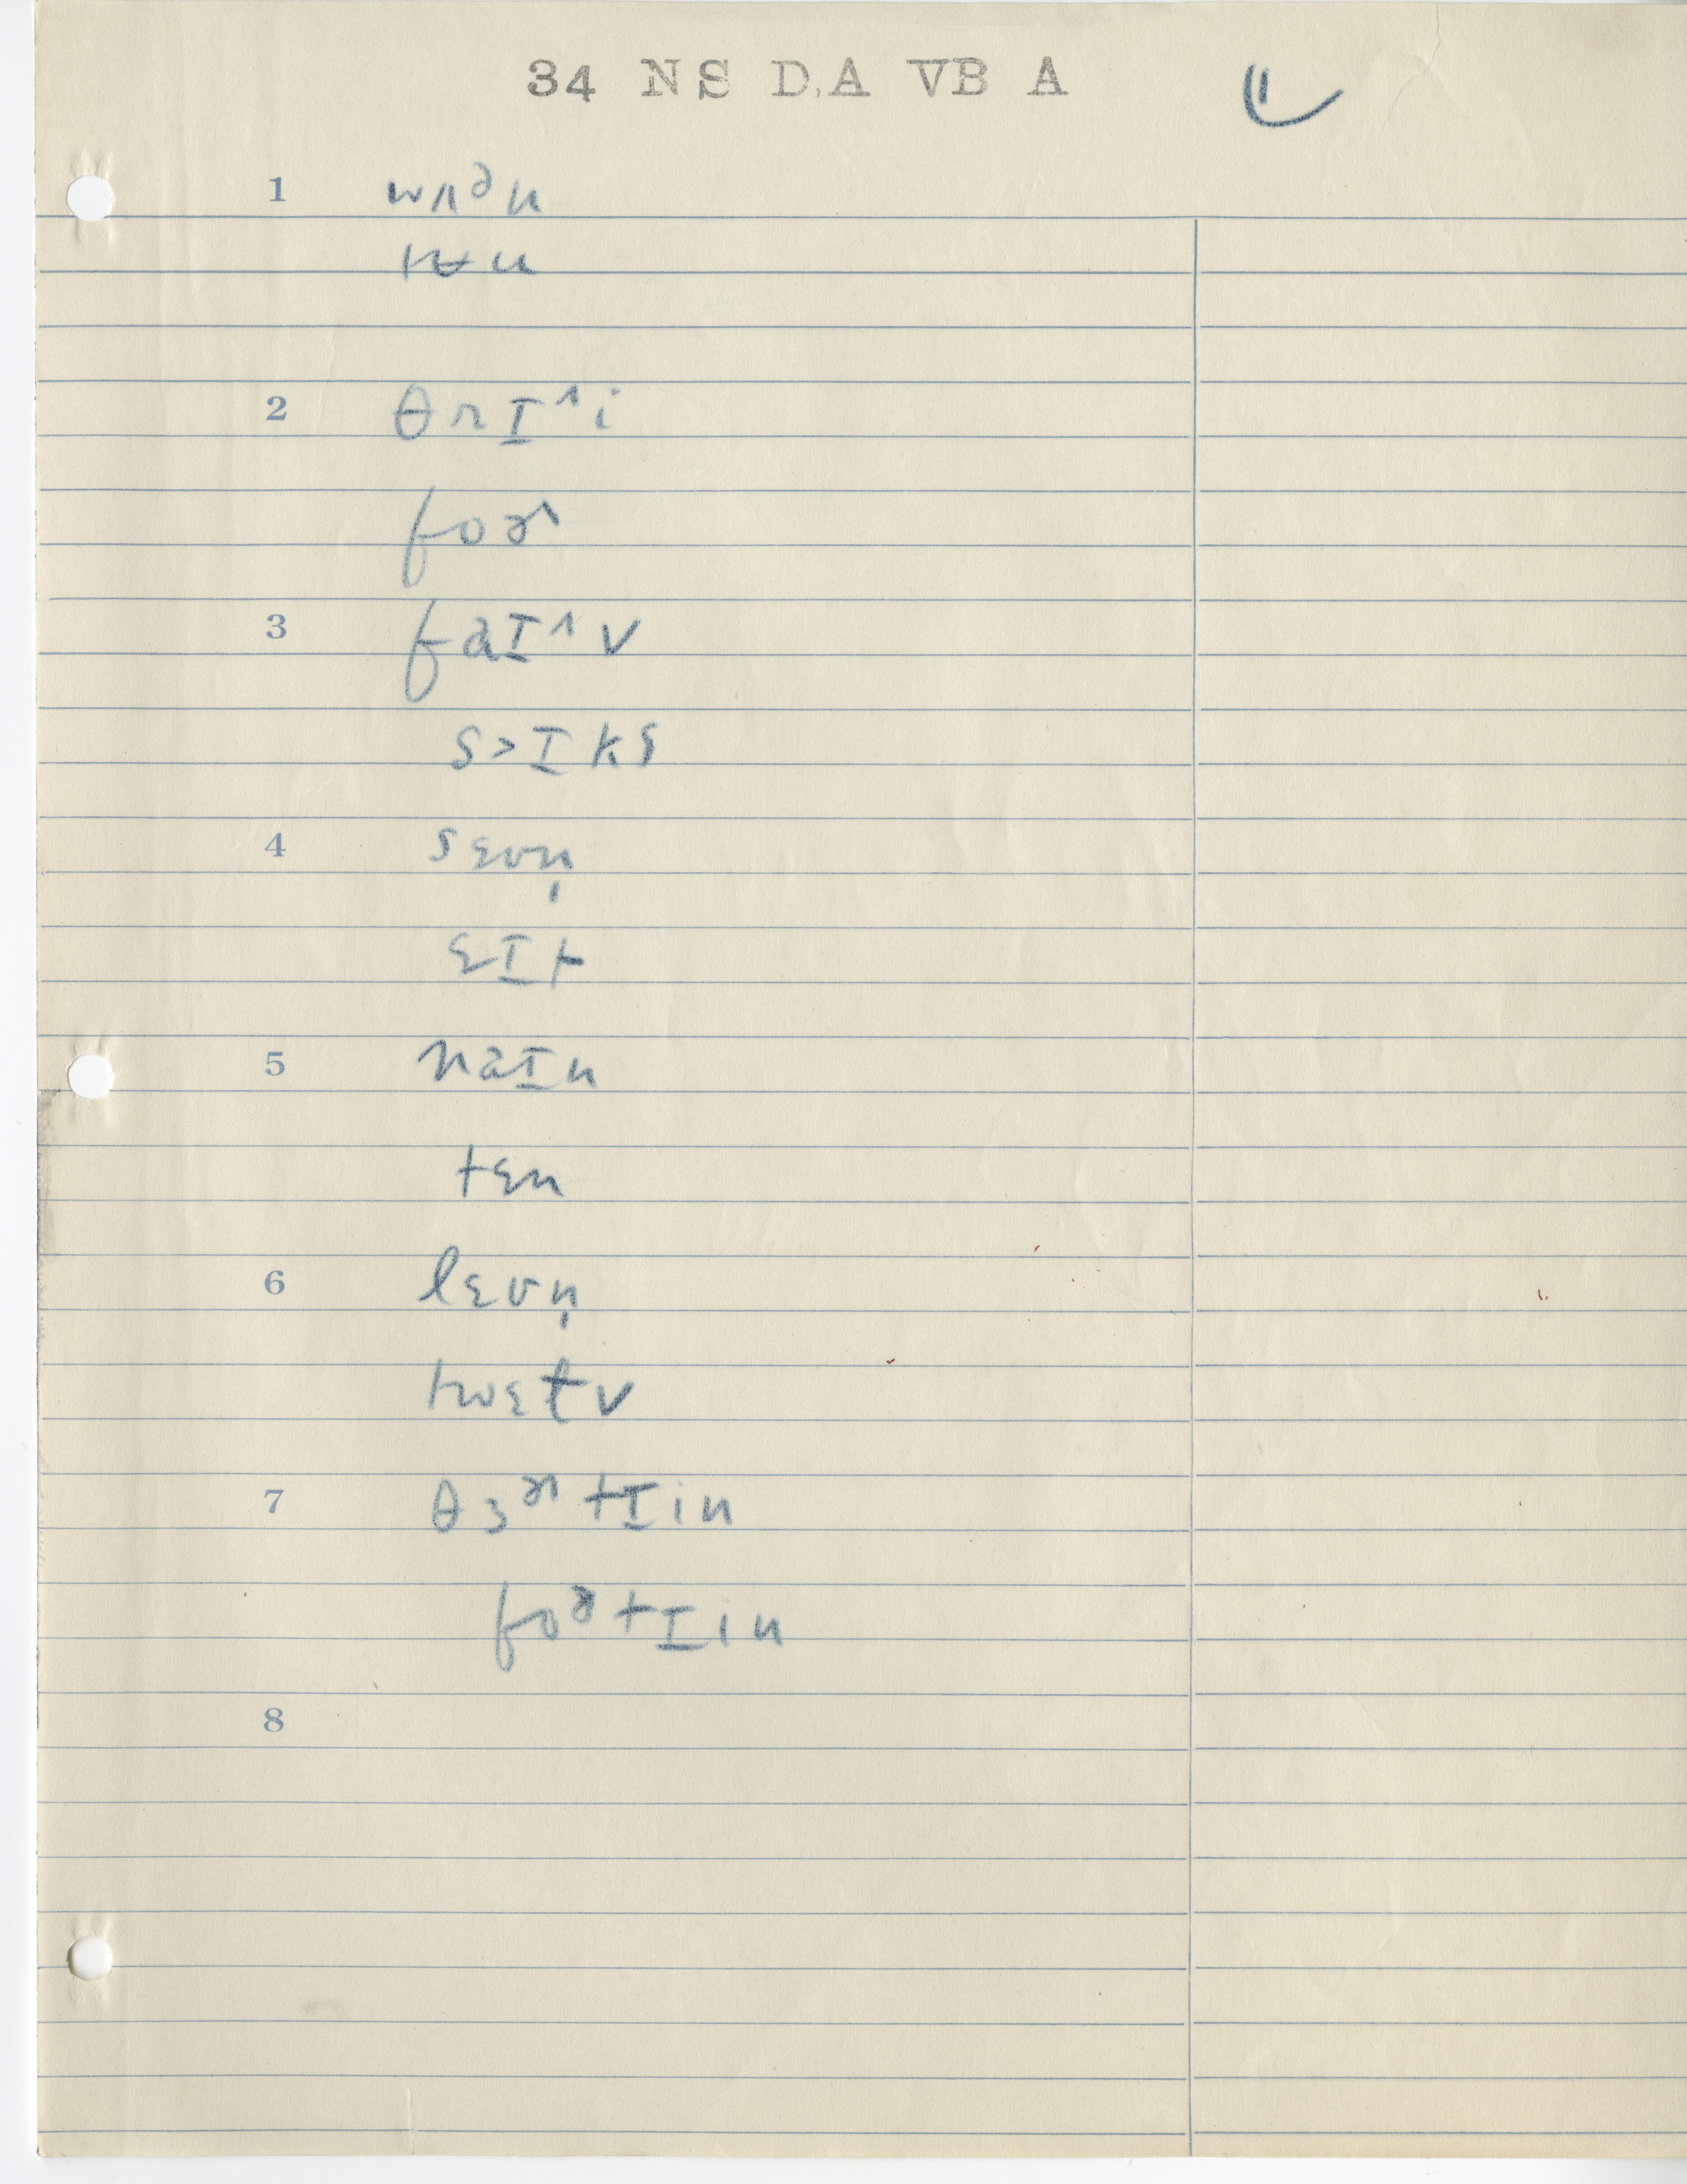 34 NS D.A VB A
1 wʌᵊn
tʉu
2 θrɪ^i
foɚ^
3 faɪ^v
s>ɪks
4 sɛvn̩
ɛɪt
5 naɪn
tɛn
6 lɛvn̩
twɛɫv
7 θɜɚtɪin
foɚtɪin
8